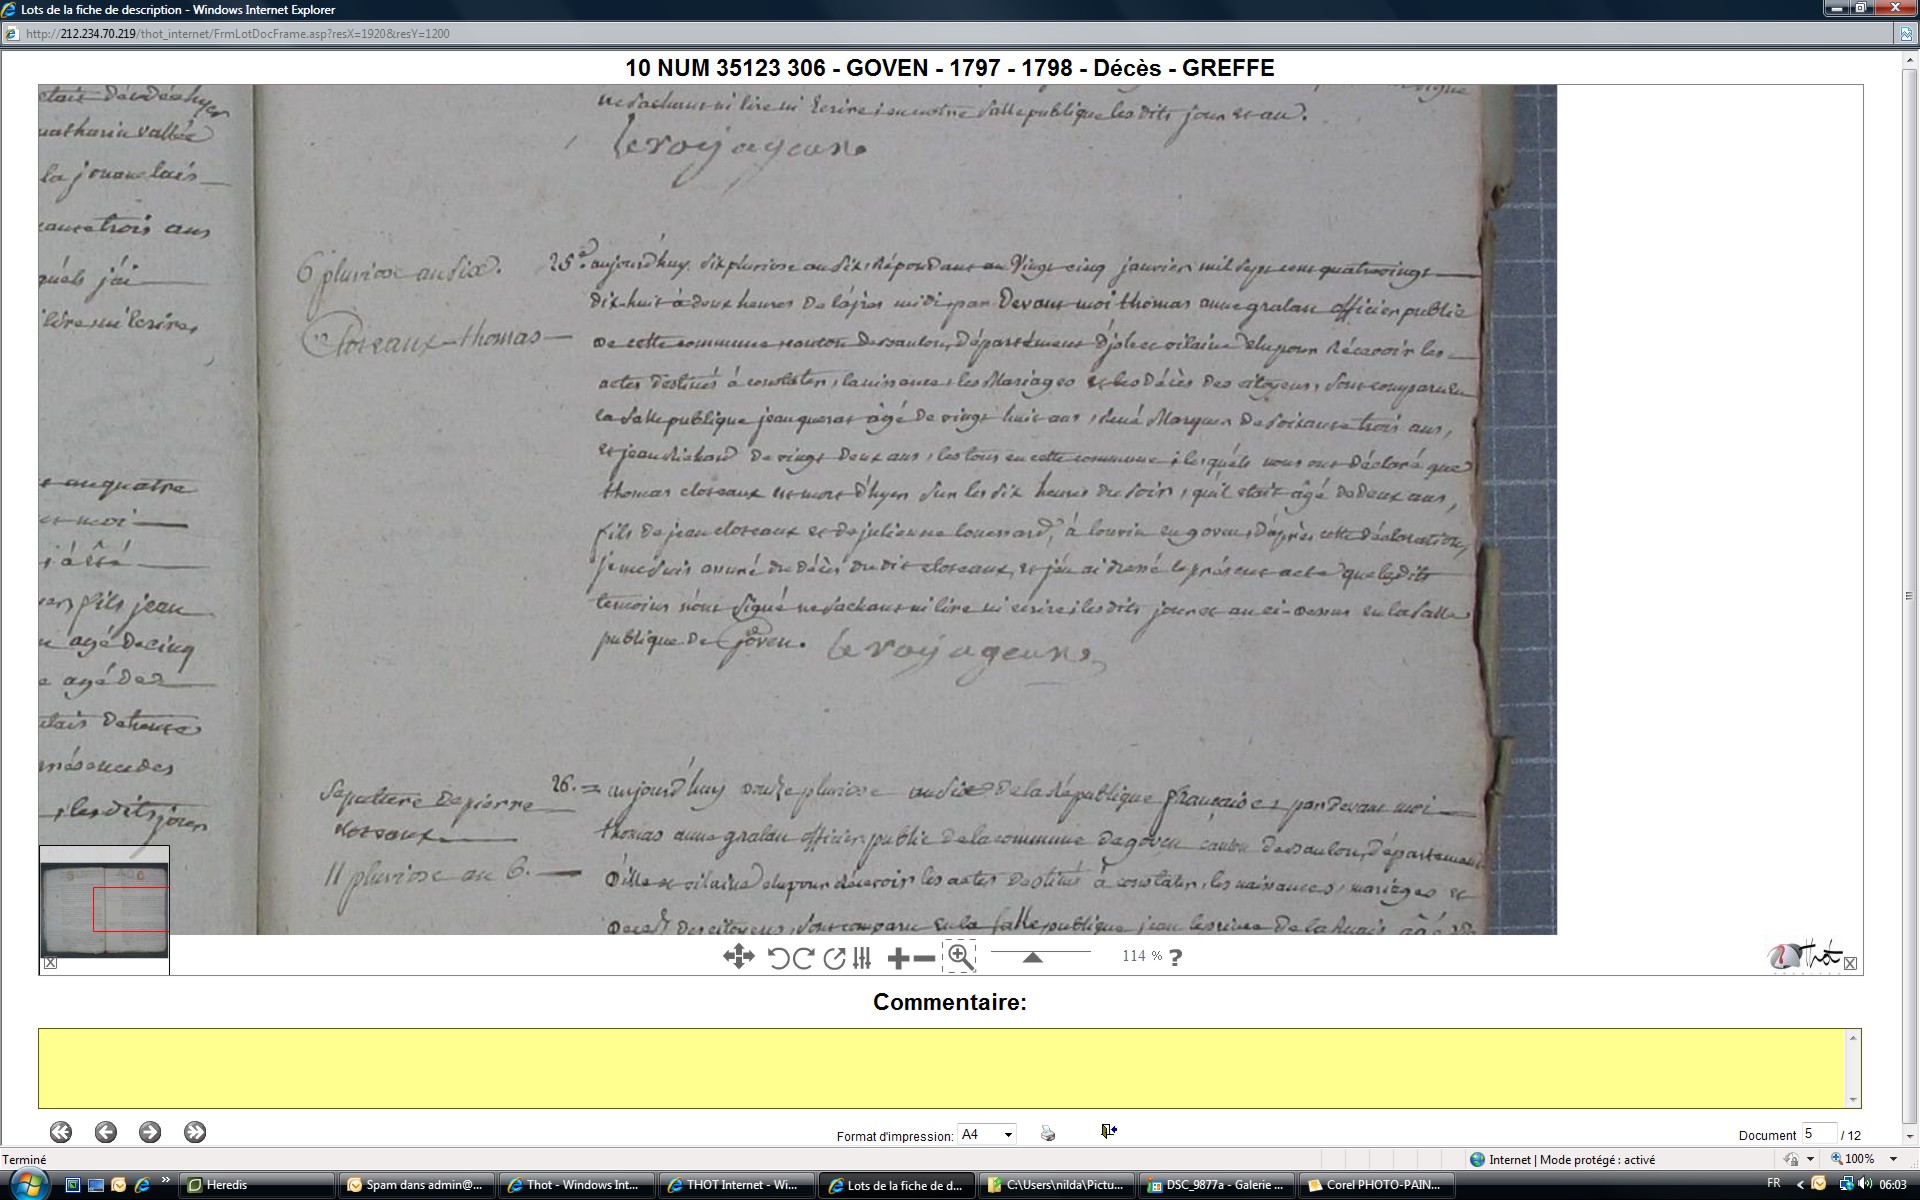 Lots de la fiche de description - Windows Internet Explorer
http://212.234.70.219/thot_internet/FrmLotDocFrame.asp?resX=1920&resY=1200
10 NUM 35123 306 - GOVEN - 1797 - 1798 - Décès - GREFFE
mathurin vallée
la jouanelais
ante trois ans
quels j'ai
lire ni écrire,
an quatre
et moi
fils jean
agé de cinq
agé de
présence des
, les dits jour
ne sachant ni lire ni écrire ; en notre salle publique les dits jour et an.
le voyageur
6 pluviose an six.
Cloteaux - thomas
25e. aujourd'huy, six pluviose an six, répondant au vingt cinq janvier mil sept cent quatre vingt
dix-huit à deux heures de l'après midi, par devant moi thomas anne gralan officier public
de cette commune canton de , département d'jole et vilaine élu pour récevoir les
actes destinés à constater, la naissance, les Mariages et les décès des citoyens, sont comparu en
la salle publique jean agé de vingt huit ans, réné Marquer de soixante trois ans,
et jean Richard de vingt deux ans, les tous en cette commune ; lesquéls nous ont déclaré que
thomas cloteaux est mort d'hyer sur les six heures du soir, qu'il était âgé de deux ans,
fils de jean cloteaux et de julienne , à louvin en goven, d'après cette déclaration,
je me suis assuré du décès du dit cloteaux, et j'en ai dressé le présent acte que les dits
temoins n'ont signé ne sachant ni lire ni ecrire ; les dits jour et an ci-dessus en la salle
publique de Goven. le voyageur
Sepulture de pierre
11 pluviose an 6.
26. = aujourd'huy onze pluviose an six de la république française, par devant moi
thomas anne gralan officier public de la commune de goven canton de , département
d'ille et vilaine élu pour récevoir les actes destinés à constater, les naissances, mariages et
décès des citoyens, sont comparu en la salle publique jean de la agé de
114 %
?
Thot
Commentaire:
Format d'impression: A4
Document 5 / 12
Terminé
Internet | Mode protégé : activé
100%
Heredis
Spam dans admin@...
Thot - Windows Int...
THOT Internet - Wi...
Lots de la fiche de d...
C:\Users\nilda\Pictu...
DSC_9877a - Galerie ...
Corel PHOTO-PAIN...
FR
06:03